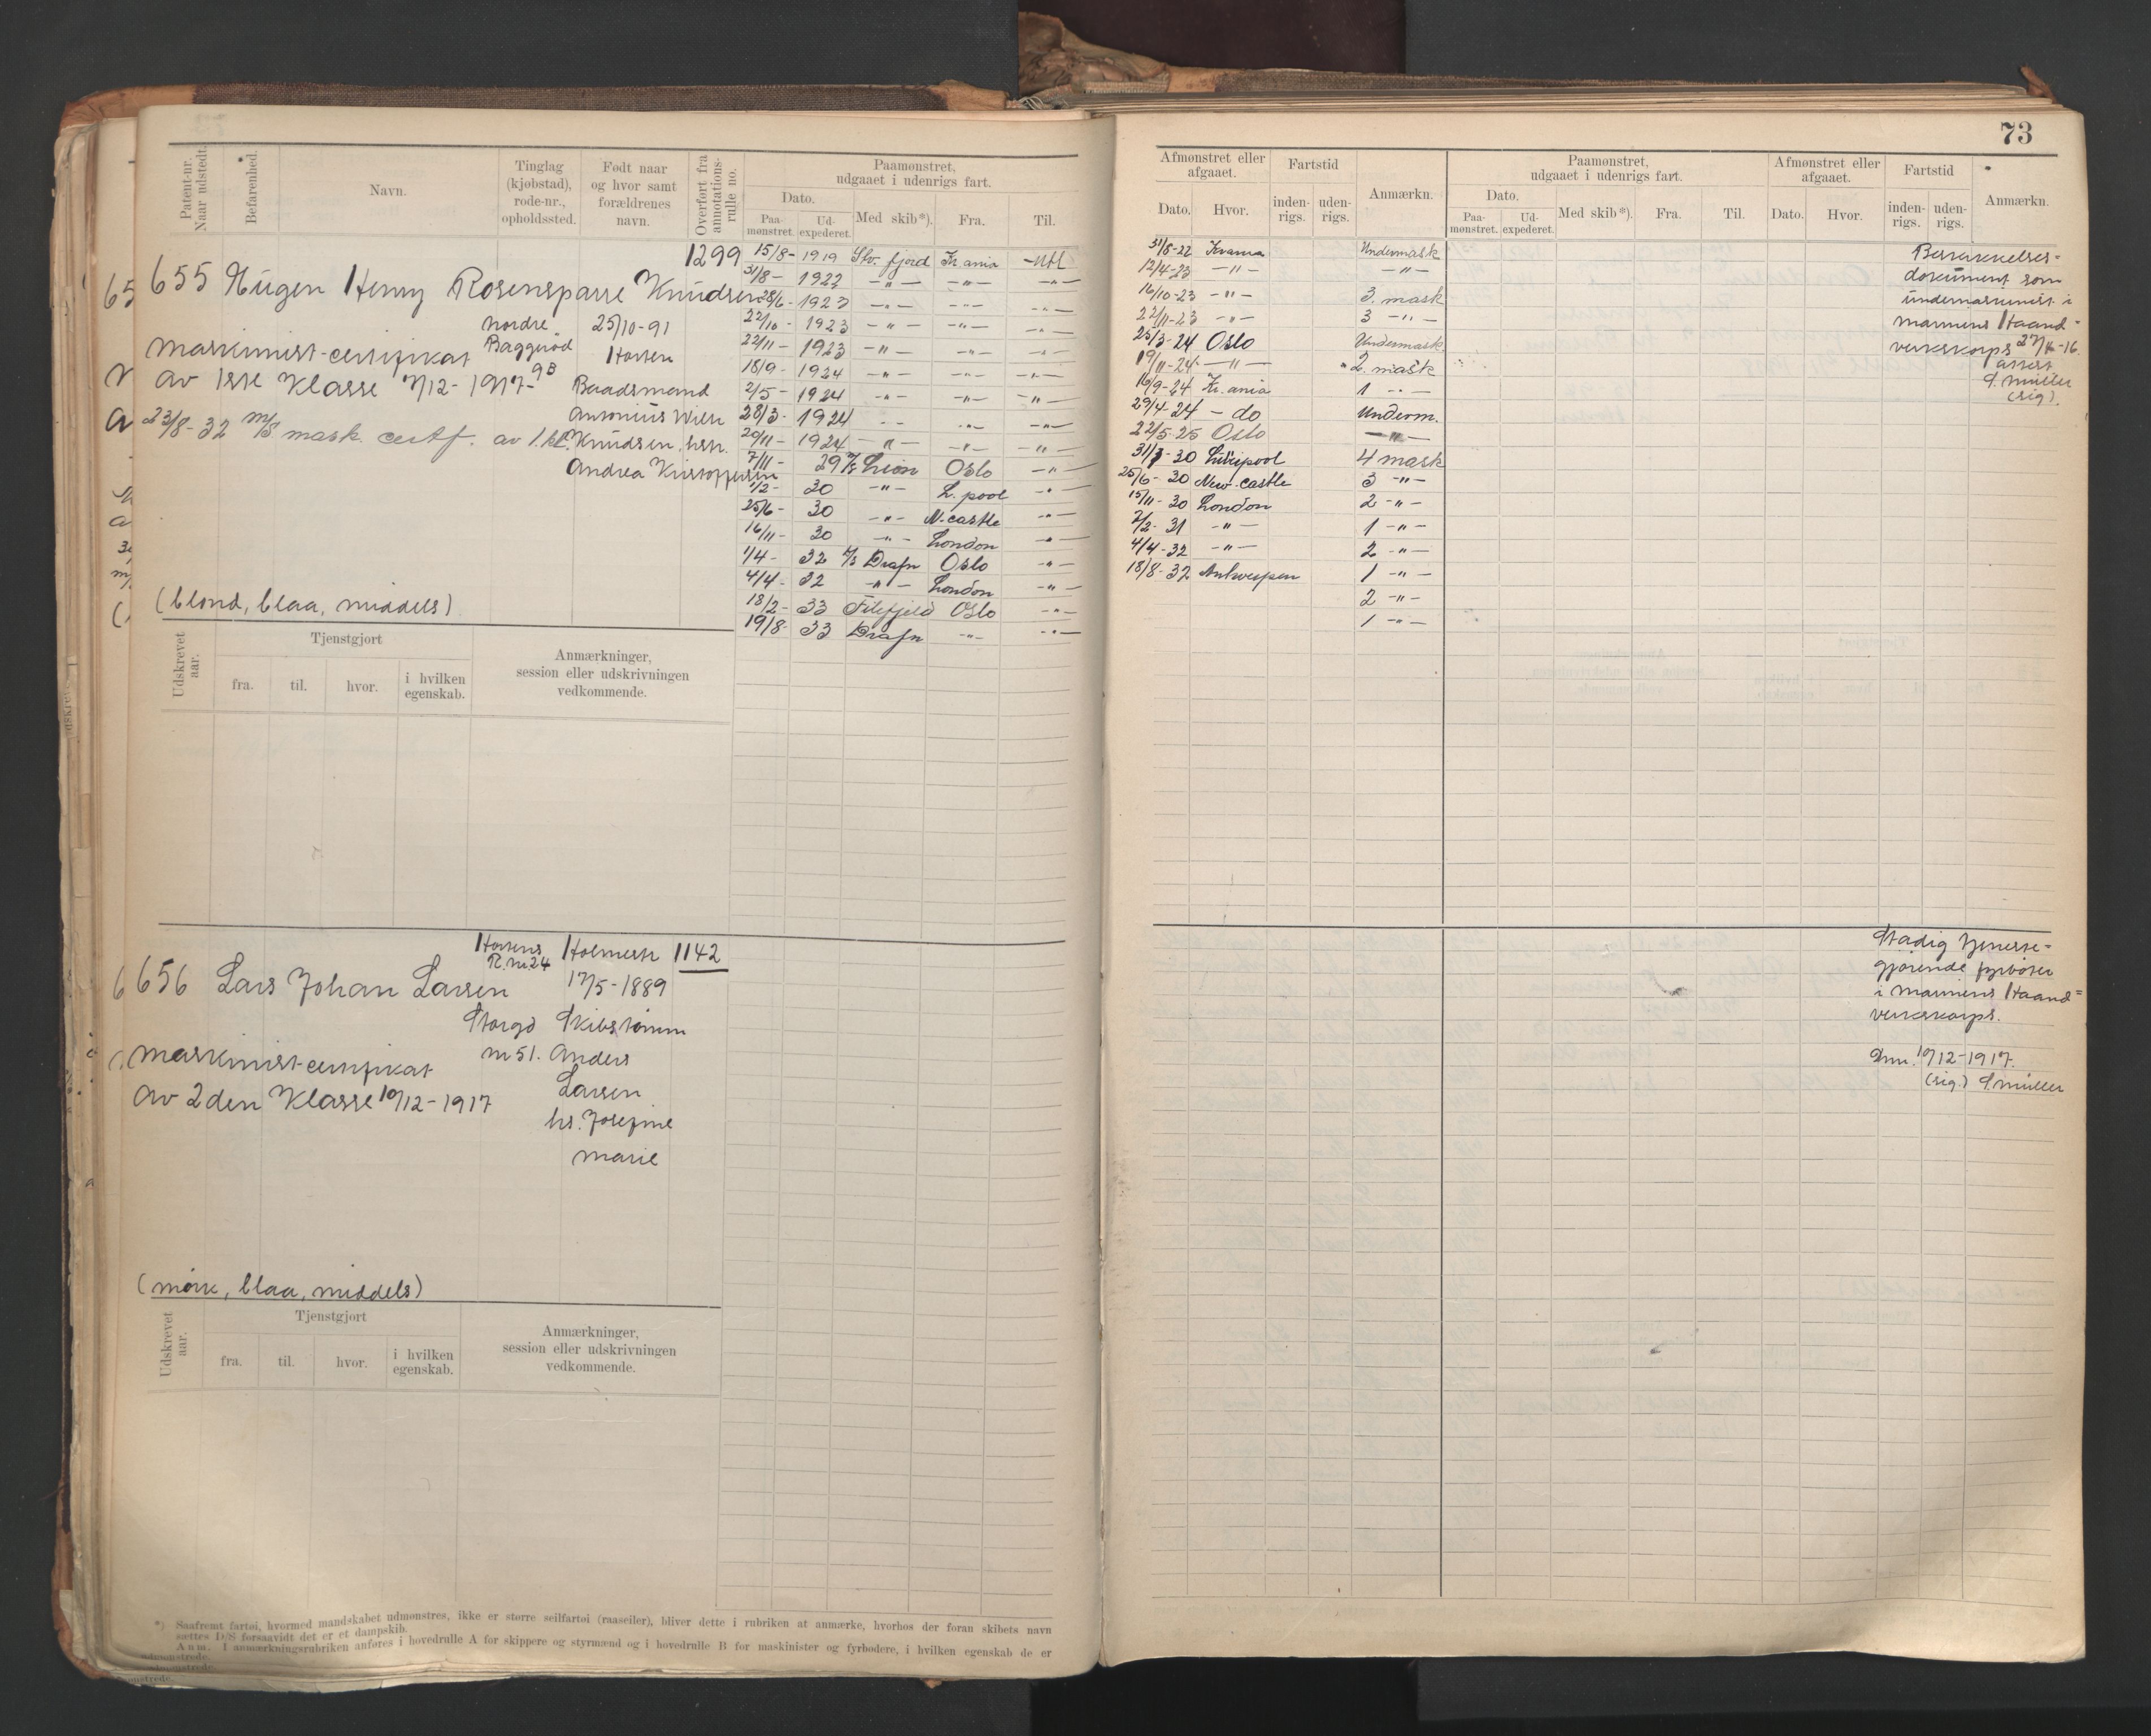 73
Patent-nr. Naar udstedt.
Befarenhed.
Navn.
Tinglag (kjøbstad), rode-nr., opholdssted.
Født naar og hvor samt forældrenes navn.
Overført fra annotations-rulle no.
Paamønstret, udgaaet i udenrigs fart.
Dato.
Paa-mønstret.
Ud-expederet.
Med skib*).
Fra.
Til.
1299
655 Hugen Henry Rosensparre Knudsen
Nordre Baggerød 9B
25/10-91
Horten
Maskinist-certifikat
av 1ste Klasse 7/12-1917
Baadsmand
Antonius Wilh
Knudsen, hstr.
Andrea Kristoffersen
23/8-32 m/s mask. certf. av 1.kl.
(blond, blaa, middels)
15/8- 1919 Stv. fjord Kr.ania -Utl
31/8- 1922 -"- -"- -"-
28/6- 1923 -"- -"- -"-
22/10- 1923 -"- -"- -"-
22/11- 1923 -"- -"- -"-
18/9- 1924 -"- -"- -"-
2/5- 1924 -"- -"- -"-
28/3- 1924 -"- -"- -"-
20/11- 1924 -"- -"- -"-
7/11- 29 Lion Oslo -"-
1/2- 30 -"- L.pool -"-
25/6- 30 -"- N.castle -"-
16/11- 30 -"- London -"-
1/4- 32 Drafn Oslo -"-
4/4- 32 -"- London -"-
18/2- 33 Filefjeld Oslo -"-
19/8- 33 Drafn -"- -"-
Udskrevet aar.
Tjenstgjort
fra.
til.
hvor.
i hvilken egenskab.
Anmærkninger, session eller udskrivningen vedkommende.
1142
656 Lars Johan Larsen
Hortens R.nr.24
Storgd
nr 51.
Holmestr
17/5-1889
Skibstømm
Anders
Larsen
hs. Josefine
Marie
Maskinist-certifikat
av 2den Klasse 10/12-1917
(mørk, blaa, middels)
Udskrevet aar.
Tjenstgjort
fra.
til.
hvor.
i hvilken egenskab.
Anmærkninger, session eller udskrivningen vedkommende.
*) Saafremt fartøi, hvormed mandskabet udmønstres, ikke er større seilfartøi (raaseiler), bliver dette i rubriken at anmærke, hvorhos der foran skibets navn
sættes D/S forsaavidt det er et dampskib.
Anm. I anmærkningsrubriken anføres i hovedrulle A for skippere og styrmænd og i hovedrulle B for maskinister og fyrbødere, i hvilken egenskab de er
udmønstrede.
Afmønstret eller afgaaet.
Dato.
Hvor.
Fartstid
inden-rigs.
uden-rigs.
Anmærkn.
Paamønstret, udgaaet i udenrigs fart.
Dato.
Paa-mønstret.
Ud-expederet.
Med skib*).
Fra.
Til.
Afmønstret eller afgaaet.
Dato.
Hvor.
Fartstid
inden-rigs.
uden-rigs.
Anmærkn.
31/8-22 Undermask
12/4-23 -"- -"-
16/10-23 -"- 3. mask
22/11-23 -"- 3 -"-
25/3-24 Oslo Undermask.
19/11-24 -"- 2. mask
16/9-24 Kr.ania 1 -"-
29/4-24 - do Underm.
22/5-25 Oslo -"-
31/1-30 Liverpool 4 mask
25/6-30 New-castle 3 -"-
15/11-30 London 2 -"-
7/2-31 -"- 1 -"-
4/4-32 -"- 2 -"-
18/8-32 Antwerpen 1 -"-
2 -"-
1 -"-
Beskikkelses-
dokument som
undermaskinist i
Marinens Haand-
verkskorps
attest
S. Müller
(sig).
Stadig tjeneste-
gjørende fyrbøter
i Marinens Haand=
verkskorps.
10/12-1917.
(sig.) S. Müller